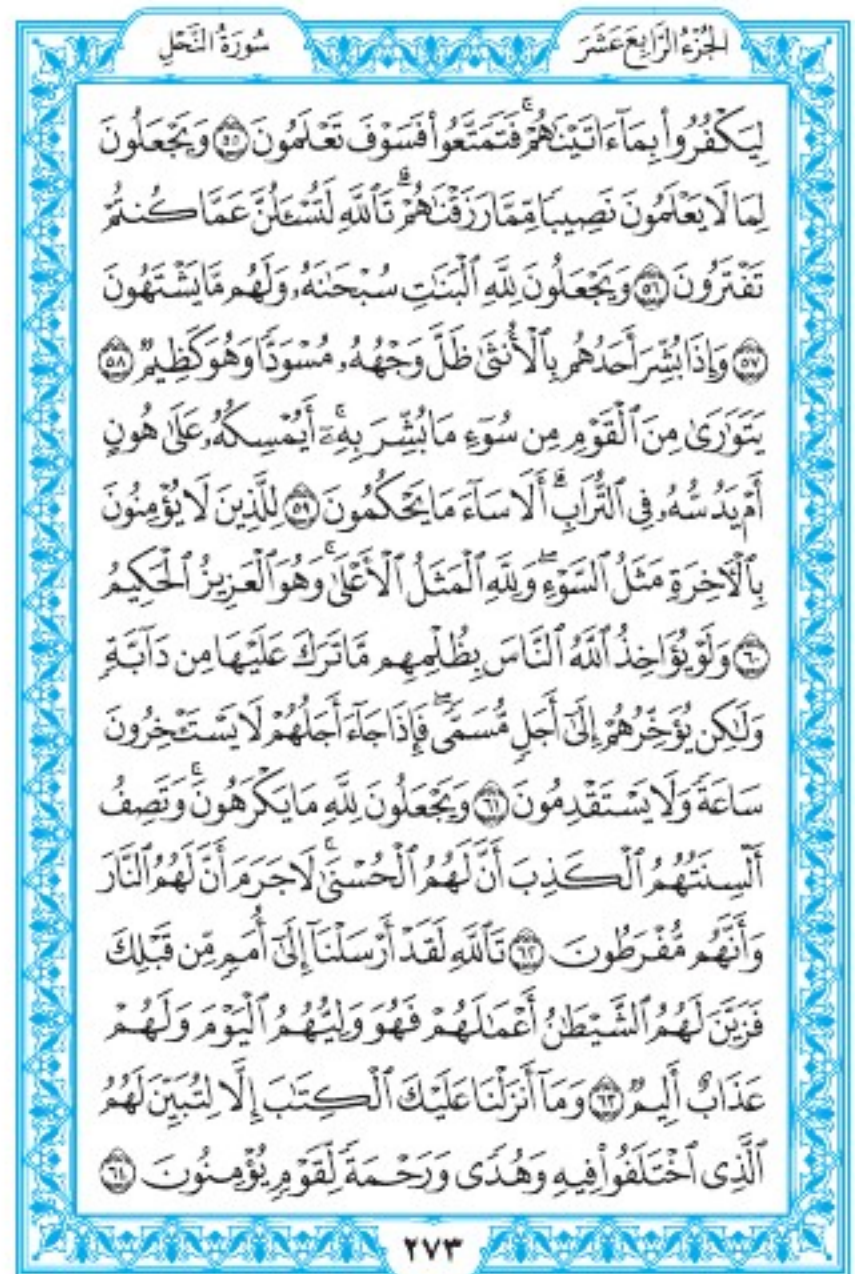 الجُزْءُ الرَّابِعَ عَشَرَ
سُورَةُ النَّحْلِ
لِيَكْفُرُوا۟ بِمَآ ءَاتَيْنَٰهُمْ ۚ فَتَمَتَّعُوا۟ فَسَوْفَ تَعْلَمُونَ ٥٥ وَيَجْعَلُونَ
لِمَا لَا يَعْلَمُونَ نَصِيبًا مِّمَّا رَزَقْنَٰهُمْ ۗ تَٱللَّهِ لَتُسْـَٔلُنَّ عَمَّا كُنتُمْ
تَفْتَرُونَ ٥٦ وَيَجْعَلُونَ لِلَّهِ ٱلْبَنَٰتِ سُبْحَٰنَهُۥ وَلَهُم مَّا يَشْتَهُونَ
٥٧ وَإِذَا بُشِّرَ أَحَدُهُم بِٱلْأُنثَىٰ ظَلَّ وَجْهُهُۥ مُسْوَدًّا وَهُوَ كَظِيمٌ ٥٨
يَتَوَٰرَىٰ مِنَ ٱلْقَوْمِ مِن سُوٓءِ مَا بُشِّرَ بِهِۦٓ ۚ أَيُمْسِكُهُۥ عَلَىٰ هُونٍ
أَمْ يَدُسُّهُۥ فِى ٱلتُّرَابِ ۗ أَلَا سَآءَ مَا يَحْكُمُونَ ٥٩ لِلَّذِينَ لَا يُؤْمِنُونَ
بِٱلْـَٔاخِرَةِ مَثَلُ ٱلسَّوْءِ ۖ وَلِلَّهِ ٱلْمَثَلُ ٱلْأَعْلَىٰ ۚ وَهُوَ ٱلْعَزِيزُ ٱلْحَكِيمُ
٦٠ وَلَوْ يُؤَاخِذُ ٱللَّهُ ٱلنَّاسَ بِظُلْمِهِم مَّا تَرَكَ عَلَيْهَا مِن دَآبَّةٍ
وَلَٰكِن يُؤَخِّرُهُمْ إِلَىٰٓ أَجَلٍ مُّسَمًّى ۖ فَإِذَا جَآءَ أَجَلُهُمْ لَا يَسْتَـْٔخِرُونَ
سَاعَةً وَلَا يَسْتَقْدِمُونَ ٦١ وَيَجْعَلُونَ لِلَّهِ مَا يَكْرَهُونَ ۚ وَتَصِفُ
أَلْسِنَتُهُمُ ٱلْكَذِبَ أَنَّ لَهُمُ ٱلْحُسْنَىٰ ۚ لَا جَرَمَ أَنَّ لَهُمُ ٱلنَّارَ
وَأَنَّهُم مُّفْرَطُونَ ٦٢ تَٱللَّهِ لَقَدْ أَرْسَلْنَآ إِلَىٰٓ أُمَمٍ مِّن قَبْلِكَ
فَزَيَّنَ لَهُمُ ٱلشَّيْطَٰنُ أَعْمَٰلَهُمْ فَهُوَ وَلِيُّهُمُ ٱلْيَوْمَ وَلَهُمْ
عَذَابٌ أَلِيمٌ ٦٣ وَمَآ أَنزَلْنَا عَلَيْكَ ٱلْكِتَٰبَ إِلَّا لِتُبَيِّنَ لَهُمُ
ٱلَّذِى ٱخْتَلَفُوا۟ فِيهِ وَهُدًى وَرَحْمَةً لِّقَوْمٍ يُؤْمِنُونَ ٦٤
٢٧٣